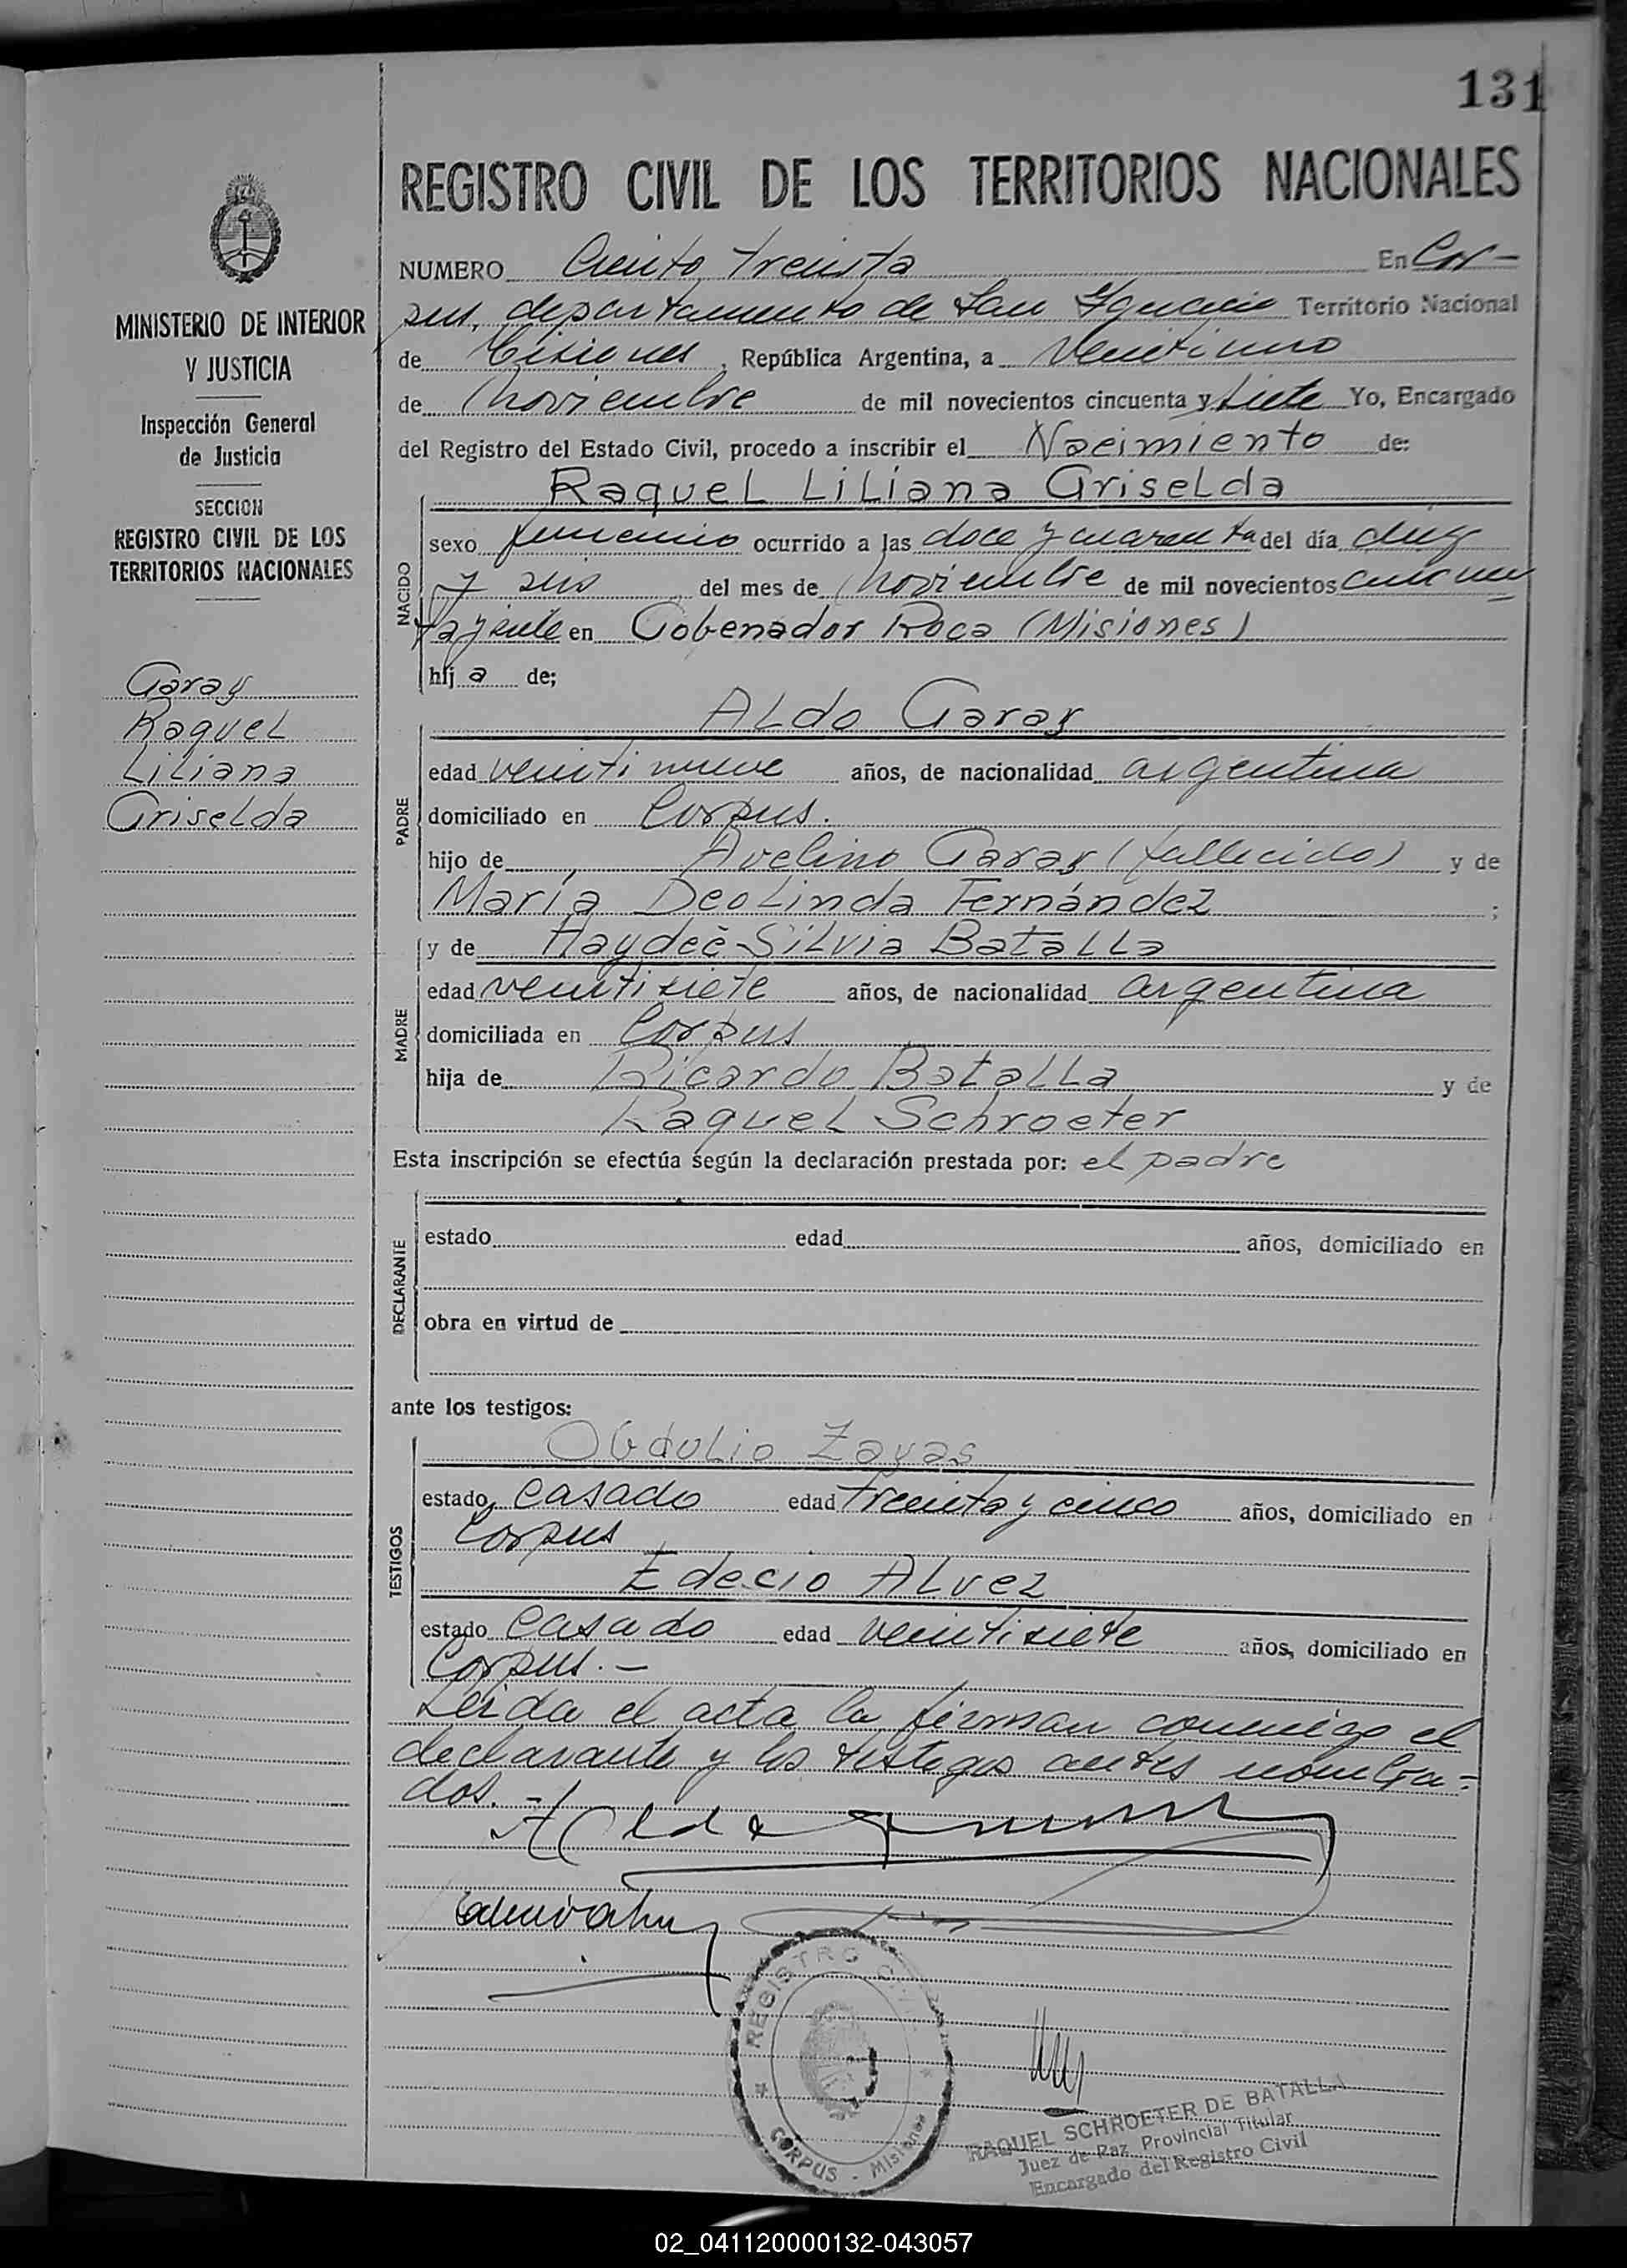 131
REGISTRO CIVIL DE LOS TERRITORIOS NACIONALES
MINISTERIO DE INTERIOR
Y JUSTICIA
Inspección General
de Justicia
SECCION
REGISTRO CIVIL DE LOS
TERRITORIOS NACIONALES
Garay
Raquel
Liliana
Griselda
NUMERO Ciento treinta En Cor-
pus, departamento de San Ignacio Territorio Nacional
de Misiones, República Argentina, a veintiuno
de noviembre de mil novecientos cincuenta y siete Yo, Encargado
del Registro del Estado Civil, procedo a inscribir el Nacimiento de:
Raquel Liliana Griselda
NACIDO
sexo femenino ocurrido a las doce y cuarenta del día diez
y seis del mes de noviembre de mil novecientos cincuen
ta y siete en Gobenador Roca (Misiones)
hij a de;
Aldo Garay
PADRE
edad veintinueve años, de nacionalidad argentina
domiciliado en Corpus.
hijo de Avelino Garay (fallecido) y de
María Deolinda Fernández ;
y de Haydeé Silvia Batalla
MADRE
edad veintisiete años, de nacionalidad argentina
domiciliada en Corpus
hija de Ricardo Batalla y de
Raquel Schroeter
Esta inscripción se efectúa según la declaración prestada por: el padre
DECLARANTE
estado edad años, domiciliado en
obra en virtud de
ante los testigos:
Obdulio Zayas
TESTIGOS
estado casado edad treinta y cinco años, domiciliado en
Corpus
Edecio Alvez
estado casado edad veintisiete años, domiciliado en
Corpus.-
Leída el acta la firman conmigo el
declarante y los testigos antes nombra-
dos.-
REGISTRO CIVIL
CORPUS - Misiones
RAQUEL SCHROETER DE BATALLA
Juez de Paz Provincial Titular
Encargado del Registro Civil
02_041120000132-043057